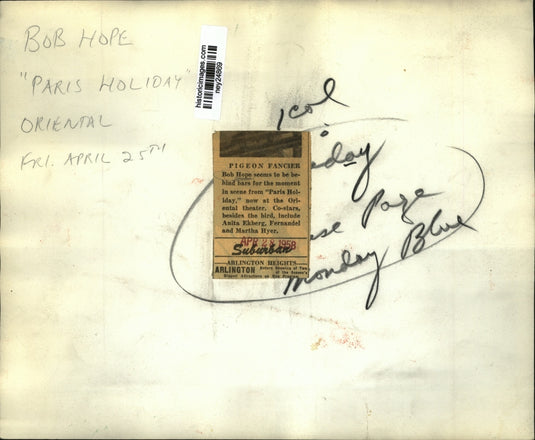 BOB HOPE
"PARIS HOLIDAY"
ORIENTAL
FRI. APRIL 25TH
historicimages.com
ney24869
1 col
iday
use Page
Monday Blue
PIGEON FANCIER
Bob Hope seems to be be-
hind bars for the moment
in scene from "Paris Hol-
iday," now at the Ori-
ental theater. Co-stars,
besides the bird, include
Anita Ekberg, Fernandel
and Martha Hyer.
APR 28 1958
Suburban
ARLINGTON HEIGHTS
ARLINGTON